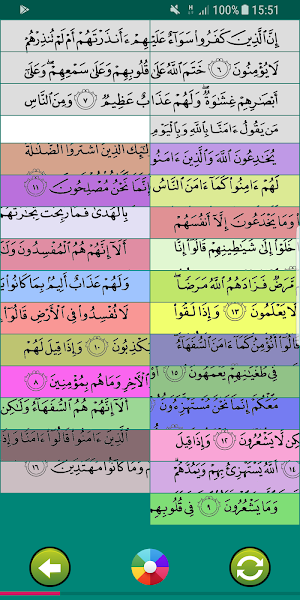 15:51 100%
إِنَّ ٱلَّذِينَ كَفَرُوا۟ سَوَآءٌ عَلَيْهِمْ ءَأَنذَرْتَهُمْ أَمْ لَمْ تُنذِرْهُمْ
لَا يُؤْمِنُونَ ٦ خَتَمَ ٱللَّهُ عَلَىٰ قُلُوبِهِمْ وَعَلَىٰ سَمْعِهِمْ ۖ وَعَلَىٰٓ
أَبْصَٰرِهِمْ غِشَٰوَةٌ ۖ وَلَهُمْ عَذَابٌ عَظِيمٌ ٧ وَمِنَ ٱلنَّاسِ
مَن يَقُولُ ءَامَنَّا بِٱللَّهِ وَبِٱلْيَوْمِ
يُخَٰدِعُونَ ٱللَّهَ وَٱلَّذِينَ ءَامَنُوا۟
لَٰٓئِكَ ٱلَّذِينَ ٱشْتَرَوُا۟ ٱلضَّلَٰلَةَ
لَهُمْ ءَامِنُوا۟ كَمَآ ءَامَنَ ٱلنَّاسُ
إِنَّمَا نَحْنُ مُصْلِحُونَ ١١
وَمَا يَخْدَعُونَ إِلَّآ أَنفُسَهُمْ
بِٱلْهُدَىٰ فَمَا رَبِحَت تِّجَٰرَتُهُمْ
خَلَوْا۟ إِلَىٰ شَيَٰطِينِهِمْ قَالُوٓا۟ إِنَّا
أَلَآ إِنَّهُمْ هُمُ ٱلْمُفْسِدُونَ وَلَٰ
مَّرَضٌ فَزَادَهُمُ ٱللَّهُ مَرَضًا ۖ
وَلَهُمْ عَذَابٌ أَلِيمٌۢ بِمَا كَانُوا۟
لَّا يَعْلَمُونَ ١٣ وَإِذَا لَقُوا۟
لَا تُفْسِدُوا۟ فِى ٱلْأَرْضِ قَالُوٓا۟
قَالُوٓا۟ أَنُؤْمِنُ كَمَآ ءَامَنَ ٱلسُّفَهَآءُ
يَكْذِبُونَ ١٠ وَإِذَا قِيلَ لَهُمْ
فِى طُغْيَٰنِهِمْ يَعْمَهُونَ ١٥
ٱلْءَاخِرِ وَمَا هُم بِمُؤْمِنِينَ ٨
مَعَكُمْ إِنَّمَا نَحْنُ مُسْتَهْزِءُونَ
أَلَآ إِنَّهُمْ هُمُ ٱلسُّفَهَآءُ وَلَٰكِن
كِن لَّا يَشْعُرُونَ ١٢ وَإِذَا قِيلَ
ٱلَّذِينَ ءَامَنُوا۟ قَالُوٓا۟ ءَامَنَّا وَإِذَا
١٤ ٱللَّهُ يَسْتَهْزِئُ بِهِمْ وَيَمُدُّهُمْ
وَمَا كَانُوا۟ مُهْتَدِينَ ١٦
وَمَا يَشْعُرُونَ ٩ فِى قُلُوبِهِم